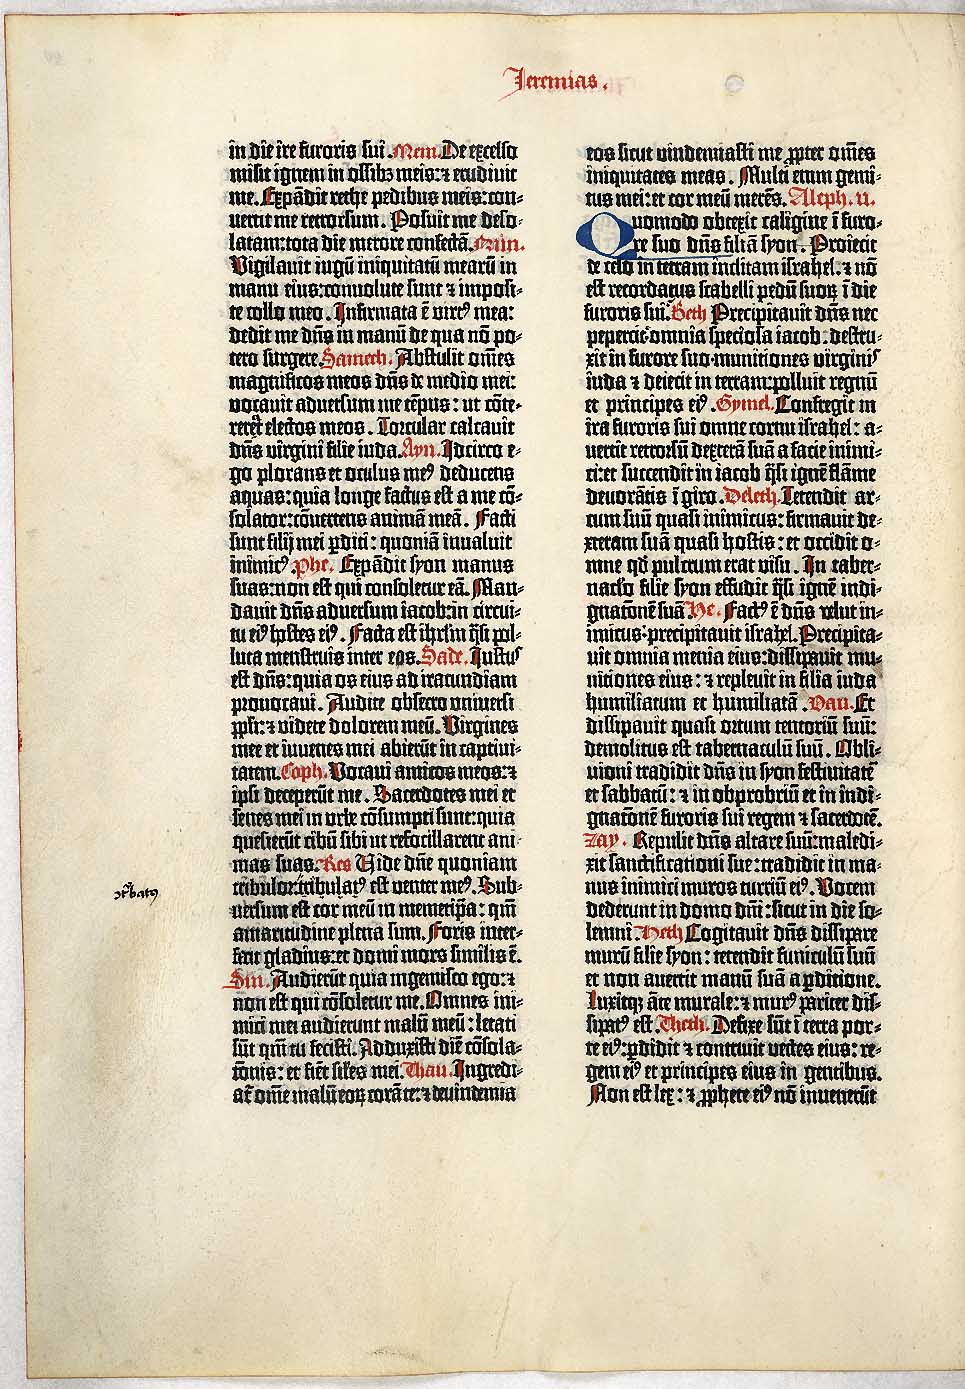 Jeremias.
in die ire furoris sui. Mem. De excelso
misit ignem in ossibꝫ meis: ⁊ erudiuit
me. Expādit rethe pedibus meis: con-
uertit me retrorsum. Posuit me deso-
latam: tota die merore confectā. Nun.
Vigilauit iugū iniquitatū mearū in
manu eius: conuolute sunt ⁊ imposi-
te collo meo. Infirmata ē virtꝰ mea:
dedit me dn̄s in manū de qua nō po-
tero surgere. Samech. Abstulit om̄es
magnificos meos dn̄s de medio mei:
vocauit aduersum me tēpus: ut cōte-
reret electos meos. Torcular calcauit
dn̄s virgini filie iuda. Ayn. Idcirco e-
go plorans et oculus meꝰ deducens
aquas: quia longe factus est a me cō-
solator: cōuertens animā meā. Facti
sunt filij mei ꝑditi: quoniā inualuit
inimicꝰ. Phe. Expādit syon manus
suas: non est qui consoletur eā. Man-
dauit dn̄s aduersum iacob: in circui-
tu eiꝰ hostes eiꝰ. Facta est ihrlm̄ q̄si pol-
luta menstruis inter eos. Sade. Iustus
est dn̄s: quia os eius ad iracundiam
prouocaui. Audite obsecro uniuersi
ppl̄i: ⁊ videte dolorem meū. Virgines
mee et iuuenes mei abierūt in captiui-
tatem. Coph. Vocaui amicos meos: ⁊
ipsi deceperūt me. Sacerdotes mei et
senes mei in urbe cōsumpti sunt: quia
quesierūt cibū sibi ut refocillarent ani-
mas suas. Res Vide dn̄e quoniam
tribulor: tribulatꝰ est venter meꝰ. Sub-
uersum est cor meū in memetip̄a: qm̄
amaritudine plena sum. Foris inter-
ficit gladius: et domi mors similis ē.
Sin. Audierūt quia ingemisco ego: ⁊
non est qui cōsoletur me. Omnes ini-
mici mei audierunt malū meū: letati
sūt qm̄ tu fecisti. Adduxisti diē cōsola-
tōnis: et fiēt sil̄es mei. Thau. Ingredi-
at̄ om̄e malū eoꝝ corā te: ⁊ deuindemia
eos sicut vindemiasti me ꝓpter om̄es
iniquitates meas. Multi enim gemi-
tus mei: et cor meū merēs. Aleph. II.
Quomodo obtexit caligine ī furo-
re suo dn̄s filiā syon. Proiecit
de celo in terram inclitam israhel. ⁊ nō
est recordatus scabelli pedū suoꝝ ī die
furoris sui. Beth Precipitauit dn̄s nec
pepercit: omnia speciosa iacob: destru-
xit in furore suo munitiones virginis
iuda ⁊ deiecit in terram: polluit regnū
et principes eiꝰ. Gymel. Confregit in
ira furoris sui omne cornu israhel: a-
uertit retrorsū dexterā suā a facie inimi-
ci: et succendit in iacob q̄si ignē flāme
deuorātis ī giro. Deleth. Tetendit ar-
cum suū quasi inimicus: firmauit de-
xteram suā quasi hostis: et occidit o-
mne qd̄ pulcrum erat visu. In taber-
naclo filie syon effudit q̄si ignē indi-
gnatōnē suā He. Factꝰ ē dn̄s velut in-
imicus: precipitauit israhel. Precipita-
uit omnia menia eius: dissipauit mu-
nitiones eius: ⁊ repleuit in filia iuda
humiliatum et humiliatā. Vau. Et
dissipauit quasi ortum tentoriū suū:
demolitus est tabernaculū suū. Obli-
uioni tradidit dn̄s in syon festiuitatē
et sabbatū: ⁊ in obprobriū et in indi-
gnatōnē furoris sui regem ⁊ sacerdotē.
Zay. Repulit dn̄s altare suū: maledi-
xit sanctificationi sue: tradidit in ma-
nus inimici muros turriū eiꝰ. Vocem
dederunt in domo dn̄i: sicut in die so-
lemni. Heth Cogitauit dn̄s dissipare
murū filie syon: tetendit funiculū suū
et non auertit manū suā a ꝑditione.
Luxitqꝫ āte murale: ⁊ murꝰ pariter dis-
sipatꝰ est. Theth. Defixe sūt ī terra por-
te eiꝰ: ꝑdidit ⁊ contriuit vectes eius: re-
gem eiꝰ et principes eius in gentibus.
Non est lex: ⁊ ꝓphete eiꝰ nō inuenerūt